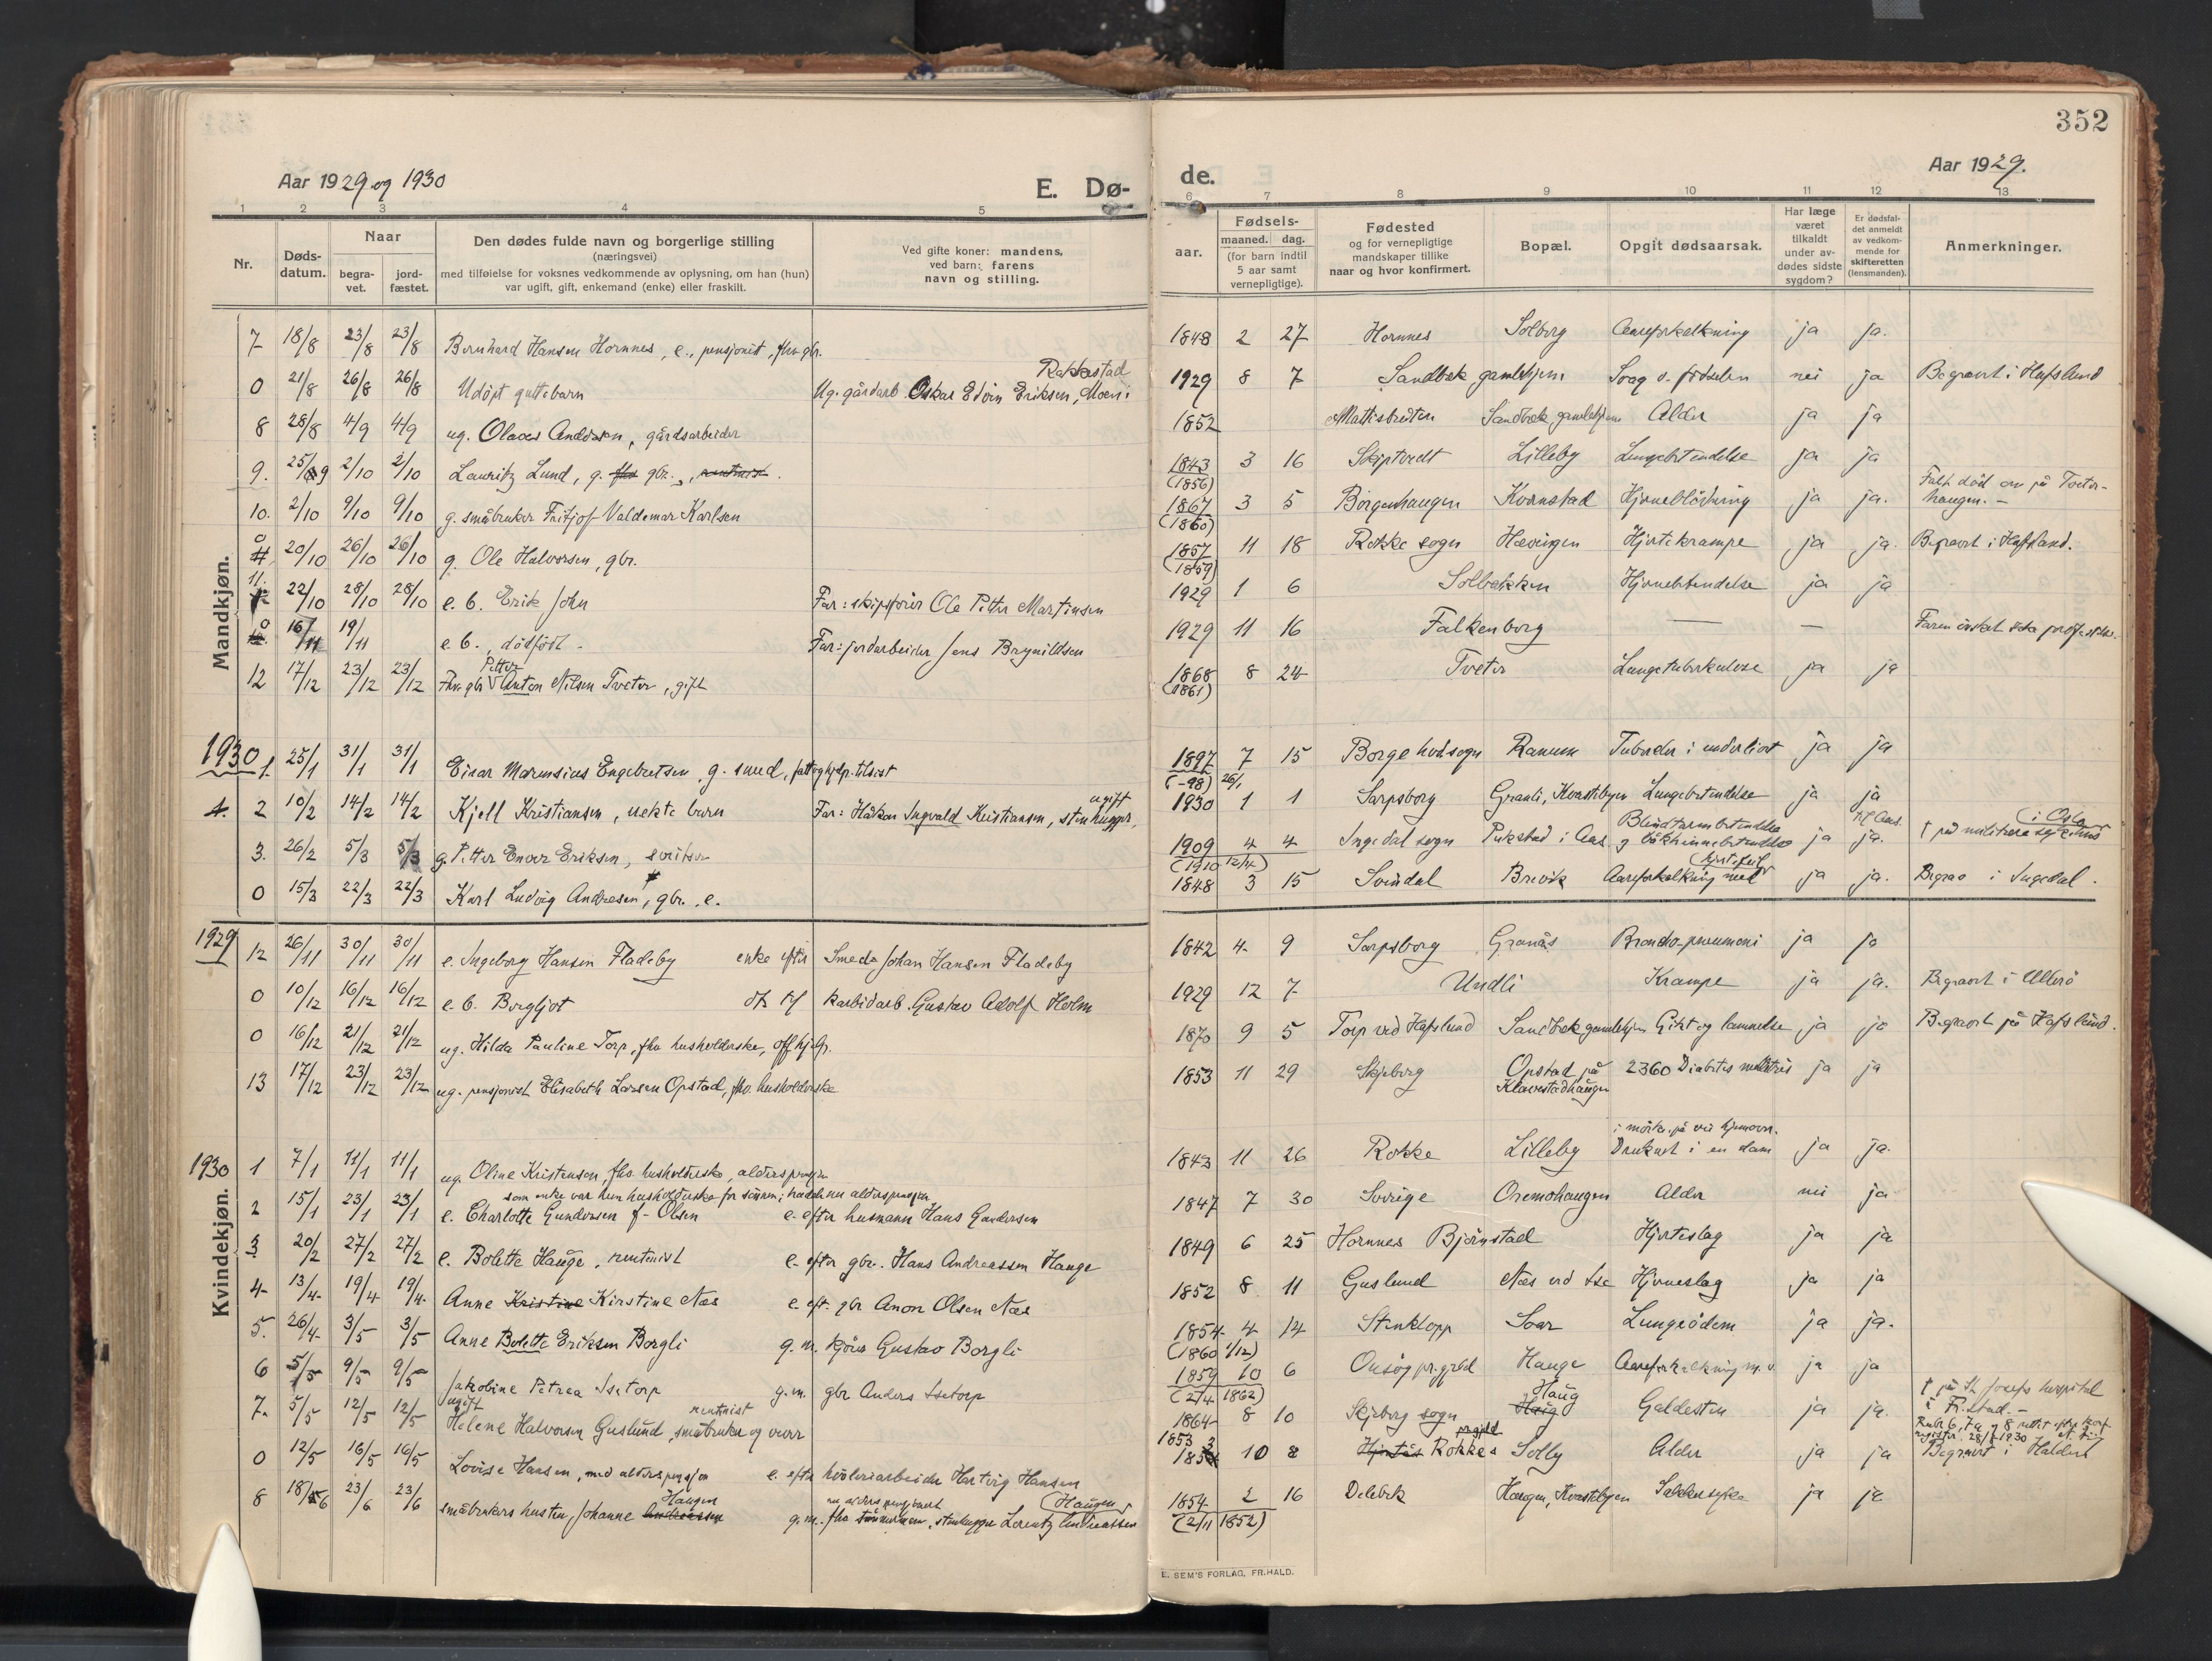 352
Aar 1929 og 1930
E. Dø-
de.
Aar 1929.
1 2 3 4 5 6 7 8 9 10 11 12 13
Nr.
Døds-
datum.
Naar
begra-
vet.
jord-
fæstet.
Den dødes fulde navn og borgerlige stilling
(næringsvei)
med tilføielse for voksnes vedkommende av oplysning, om han (hun)
var ugift, gift, enkemand (enke) eller fraskilt.
Ved gifte koner: mandens,
ved barn: farens
navn og stilling.
Fødsels-
aar.
maaned. dag.
(for barn indtil
5 aar samt
vernepligtige).
Fødested
og for vernepligtige
mandskaper tillike
naar og hvor konfirmert.
Bopæl.
Opgit dødsaarsak.
Har læge
været
tilkaldt
under av-
dødes sidste
sygdom?
Er dødsfal-
det anmeldt
av vedkom-
mende for
skifteretten
(lensmanden).
Anmerkninger.
Mandkjøn.
7 18/8 23/8 23/8 Bernhard Hansen Hornnes, e., pensjonist, fhv. gbr. 1848 2 27 Hornnes Solborg Aareforkalkning ja ja.
Rakkestad
0 21/8 26/8 26/8 Udöpt guttebarn Ug. gårdarb. Oskar Edvin Eriksen, Moen i 1929 8 7 Sandbæk gamlehjem Svag v. födselen nei ja Begravet i Hafslund
8 28/8 4/9 4/9 ug. Olaves Andersen, gårdsarbeider 1852 Mattisbråten Sandbæk gamlehjem Alder ja ja
9. 25/9 2/10 2/10 Lauritz Lund, g. fhv gbr., rentnist. 1843 3 16 Skiptvedt Lilleby Lungebetendelse ja ja
(1856)
10. 2/10 9/10 9/10 g. småbruker Fritjof Valdemar Karlsen 1867 3 5 Borgenhaugen Kvernstad Hjerneblödning ja ja. Falt död om på Tveter-
haugen. -
(1860)
0 20/10 26/10 26/10 g. Ole Halvorsen, gbr. 1857 11 18 Rokke sogn Hævingen Hjertekrampe ja ja. Begravet i Hafslund.
(1859)
11. 22/10 28/10 28/10 e. b. Erik John Far: skipsfører Ole Petter Martinsen 1929 1 6 Solbakken Hjernebetendelse ja ja
0 16/11 19/11 e. b., dödfödt - Far: jordarbeider Jens Brynildsen 1929 11 16 Falkenborg — —
Petter
12 17/12 23/12 23/12 Fhv. gbr Anton Nilsen Tveter, gift 1868 8 24 Tveter Lungetuberkulose ja ja
(1861)
1930
1. 25/1 31/1 31/1 Einar Marensius Engebretsen, g. smed, fattighjelp. tilsist 1897 7 15 Borge hvdsogn Ranum Tuberkler i underlivet ja ja
(-98) 26/1
ugift
2 10/2 14/2 14/2 Kjell Kristiansen, uekte barn Far: Håkon Ingvald Kristiansen, stenhugger, 1930 1 1 Sarpsborg Granli, Kvastebyen Lungebetendelse ja ja
3. 26/2 5/3 5/3 g. Petter Enver Eriksen, 1909 4 4 Ingedal sogn Pukstad i Aas Blindtarmbetendelse
og bukhinnebetendelse ja ja. † på militære sykehus i Oslo
(1910 12/4)
0 15/3 22/3 22/3 Karl Ludvig Andresen, gbr. e. 1848 3 15 Svindal Brevik Aareforkalkning med hjertefeil ja ja. Begrav i Ingedal.
Kvindekjøn.
1929
12 26/11 30/11 30/11 e. Ingeborg Hansen Fladeby enke efter Smed Johan Hansen Fladeby 1842 4 9 Sarpsborg Granås Broncho-pneumoni ja ja
0 10/12 16/12 16/12 e. b. Borgljot dt. til karbidarb. Gustav Adolf Holm 1929 12 7 Undli Krampe ja ja. Begravet i Ullerö
0 16/12 21/12 21/12 ug. Hilda Pauline Torp, fhv husholderske, off. hjelp. 1870 9 5 Torp ved Hafslund Sandbæk gamlehjem Gikt og lammelse ja ja Begravet på Hafslund.
13 17/12 23/12 23/12 ug. pensjonist Elisabeth Larsen Opstad, fhv. husholderske 1853 11 29 Skjeberg Opstad på
Klavestadhaugen 2360 Diabetes mellitus ja ja
1930
1 7/1 11/1 11/1 ug. Oline Kristensen, fhv. husholderske, alderspensjon 1843 11 26 Rokke Lilleby Druknet i en dam ja ja.
som enke var hun husholderske for sönnen; hadde nu alderspensjon
2 15/1 23/1 23/1 e. Charlotte Gundersen f. Olsen e. efter husmann Hans Gundersen 1847 7 30 Sverige Oremohaugen Alder nei ja
3 20/2 27/2 27/2 e. Bolette Hauge, rentenist e. efter gbr. Hans Andreassen Hauge 1849 6 25 Hornnes Bjørnstad Hjerteslag ja ja
4 13/4 19/4 19/4 Anne Kristine Kirstine Næs e. eft. gbr Anon Olsen Næs 1852 8 11 Guslund Næs ved Ise Hjerneslag ja ja
5. 26/4 3/5 3/5 Anne Bolette Eriksen Borgli g. m. Gustav Borgli 1854 4 14 Stenklopp Soar Lungeödem ja ja.
(1860 1/12)
6 5/5 9/5 9/5 Jakobine Petrea Isetorp g. m. gbr Anders Isetorp 1859 10 6 Onsøy pr.gjeld Hauge Aareforkalkning m. v. ja ja
(2/4 1862)
ugift rentenist
7. 5/5 12/5 12/5 Helene Halvorsen Guslund, småbruker og 1864 8 10 Skjeberg sogn Haug Galdesten ja ja. † på St. Josefs hospital
i Fr.stad. -
0 12/5 16/5 16/5 Lovise Hansen, med alderspensjon e. efter hövleriarbeider Hartvig Hansen 1853 10 8 Rokke prgjeld Solly Alder ja ja Begravet i Halden
Haugen
8 18/6 23/6 23/6 småbrukers hustru Johanne Andreassen g. m. fhv. stenhugger Lorentz Andreassen Haugen 1854 2 16 Delebek Haugen, Kvastebyen Sukkersyke ja ja
(2/11 1852)
E. SEM'S FORLAG, FR.HALD.